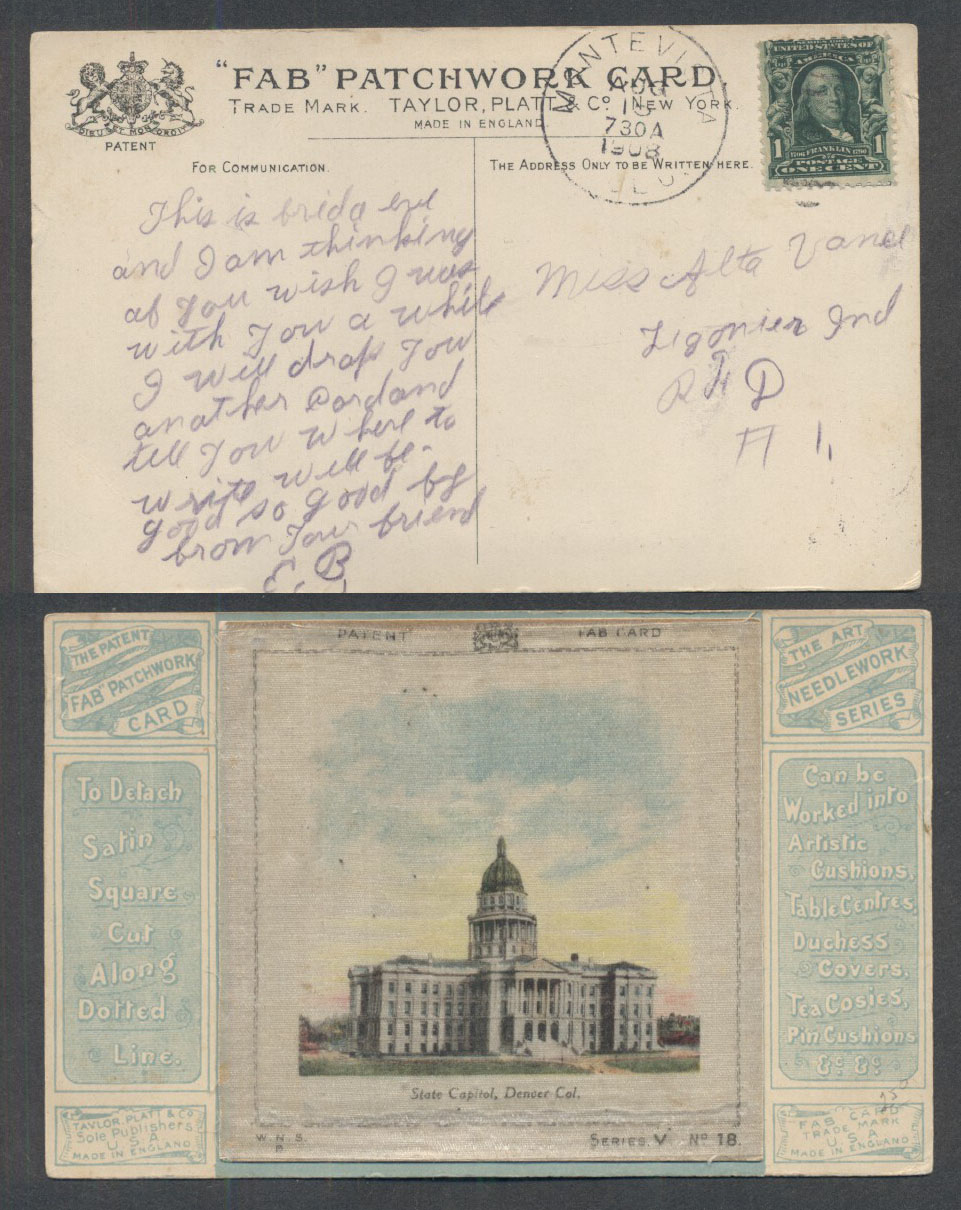 "FAB" PATCHWORK CARD
TRADE MARK. TAYLOR, PLATT & Co NEW YORK.
MADE IN ENGLAND.
DIEU ET MON DROIT
PATENT
MONTEVISTA
AUG
730A
1908
UNITED STATES OF
AMERICA
1706 FRANKLIN 1790
1 POSTAGE 1
ONE CENT
FOR COMMUNICATION.
THE ADDRESS ONLY TO BE WRITTEN HERE.
This is frida eve
and I am thinking
of you wish I was
with you a while
I will drop you
another card and
tell you where to
write will be
good so good by
from your friend
E. B.
Miss Alta Vance
Ligonier Ind
R F D
# 1,
THE PATENT
"FAB" PATCHWORK
CARD
PATENT FAB CARD
THE ART
NEEDLEWORK
SERIES
To Detach
Satin
Square
Cut
Along
Dotted
Line.
Can be
Worked into
Artistic
Cushions,
Table Centres,
Duchess
Covers,
Tea Cosies,
Pin Cushions
&c &c
State Capitol, Denver Col.
W. N. S.
P
SERIES. V No 18.
TAYLOR, PLATT & Co
Sole Publishers
U S A
MADE IN ENGLAND
FAB CARD
TRADE MARK
U S A
MADE IN ENGLAND